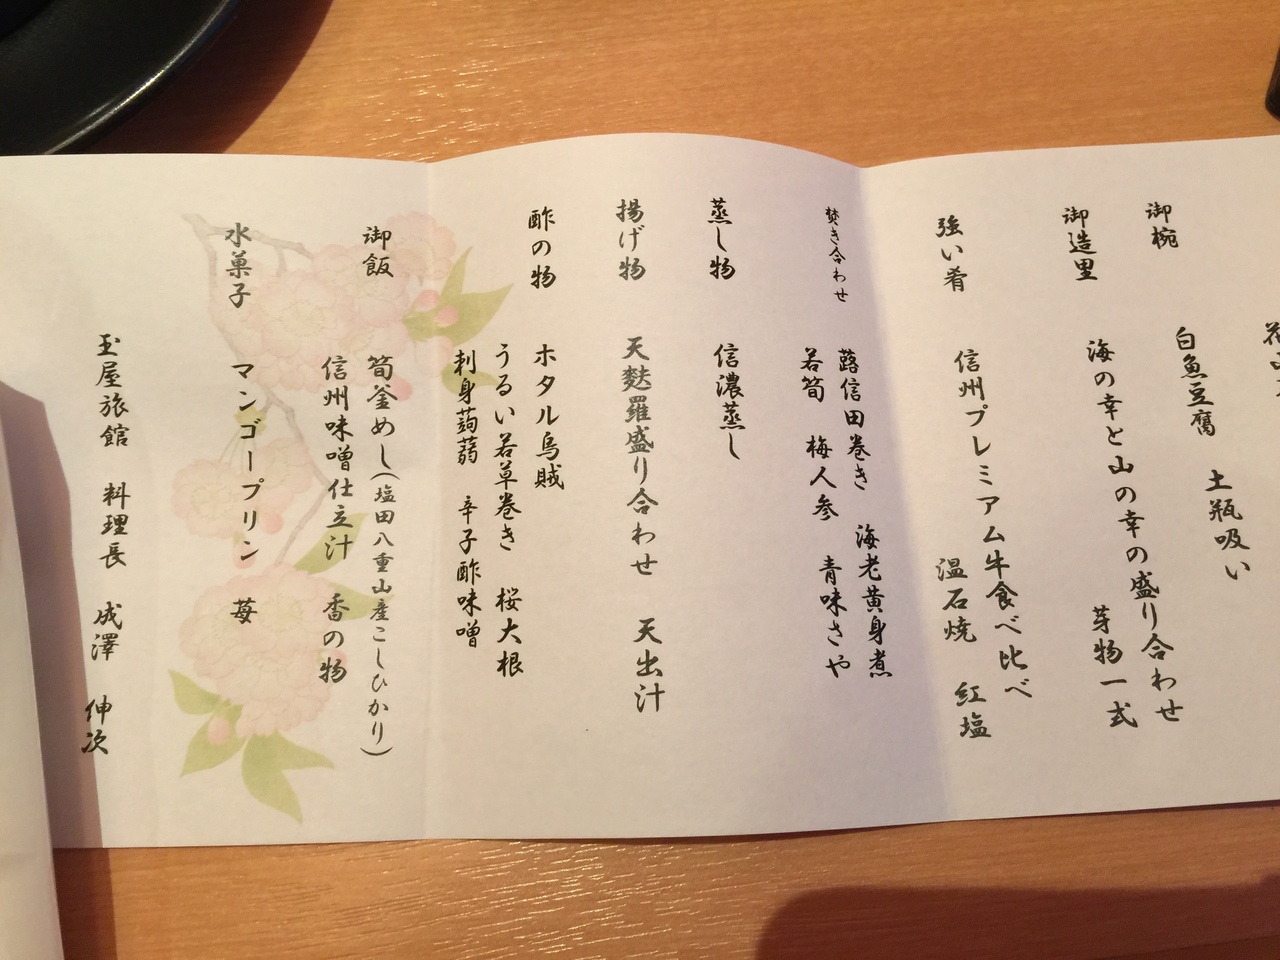 御椀
白魚豆腐　土瓶吸い
御造里
海の幸と山の幸の盛り合わせ
芽物一式
強い肴
信州プレミアム牛食べ比べ
温石焼　紅塩
焚き合わせ
蕗信田巻き　海老黄身煮
若筍　梅人参　青味さや
蒸し物
信濃蒸し
揚げ物
天麩羅盛り合わせ　天出汁
酢の物
ホタル烏賊
うるい若草巻き　桜大根
刺身蒟蒻　辛子酢味噌
御飯
筍釜めし（塩田八重山産こしひかり）
信州味噌仕立汁　香の物
水菓子
マンゴープリン　苺
玉屋旅館　料理長　成澤　伸次